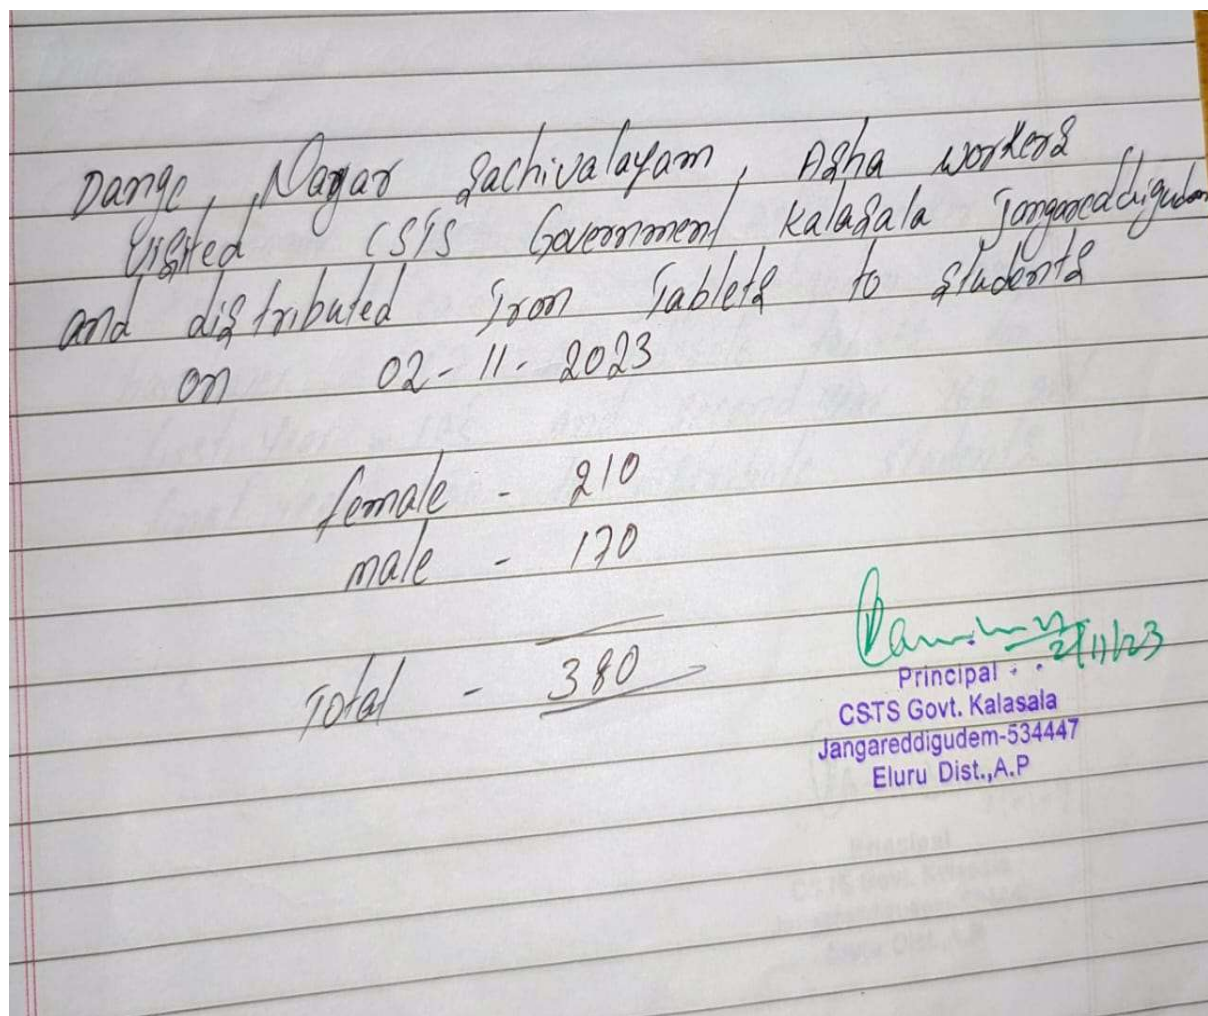 Dange, Nagar Sachivalayam, Asha workers
visited CSTS Government Kalasala Jangareddigudem
and distributed Iron Tablets to students
on 02-11-2023
female - 210
male - 170
Total - 380
2/11/23
Principal
CSTS Govt. Kalasala
Jangareddigudem-534447
Eluru Dist.,A.P